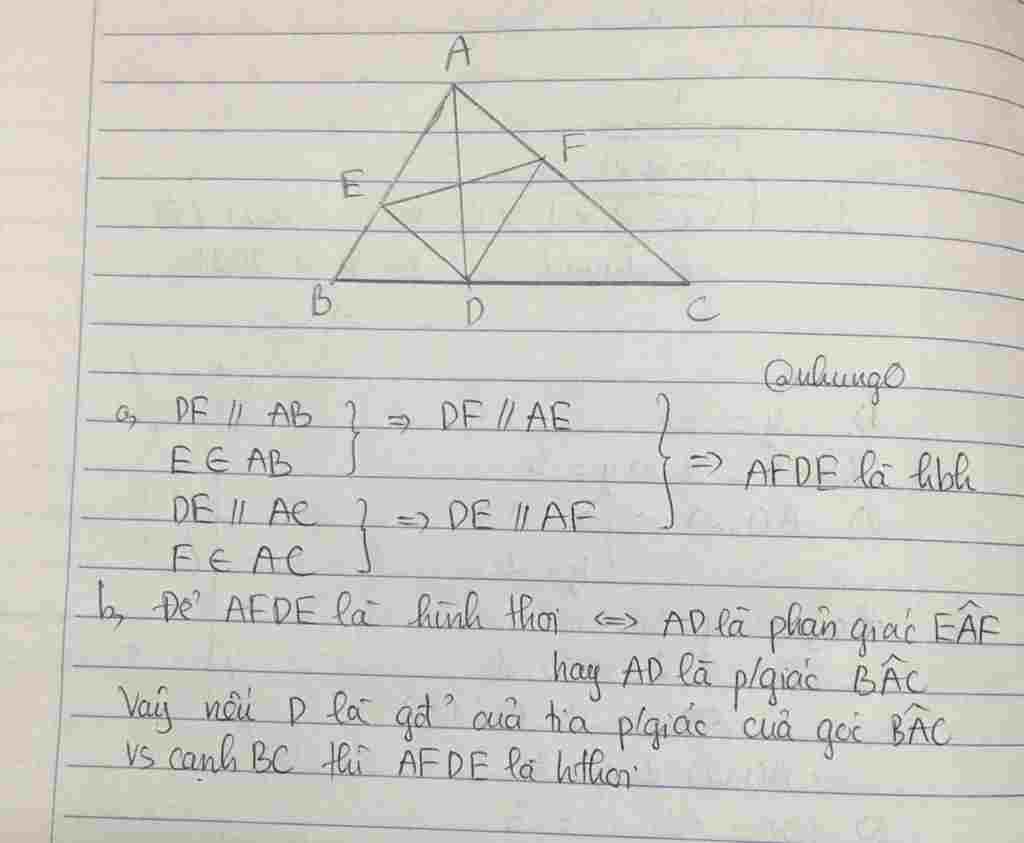 A
F
E
B
D
C
@nhungO
a, DF // AB } => DF // AE
E ∈ AB
} => AFDE là hbh
DE // AC } => DE // AF
F ∈ AC
b, Để AFDE là hình thoi <=> AD là phân giác EÂF
hay AD là p/giác BÂC
Vậy nếu D là gđ' của tia p/giác của góc BÂC
vs cạnh BC thì AFDE là hthoi